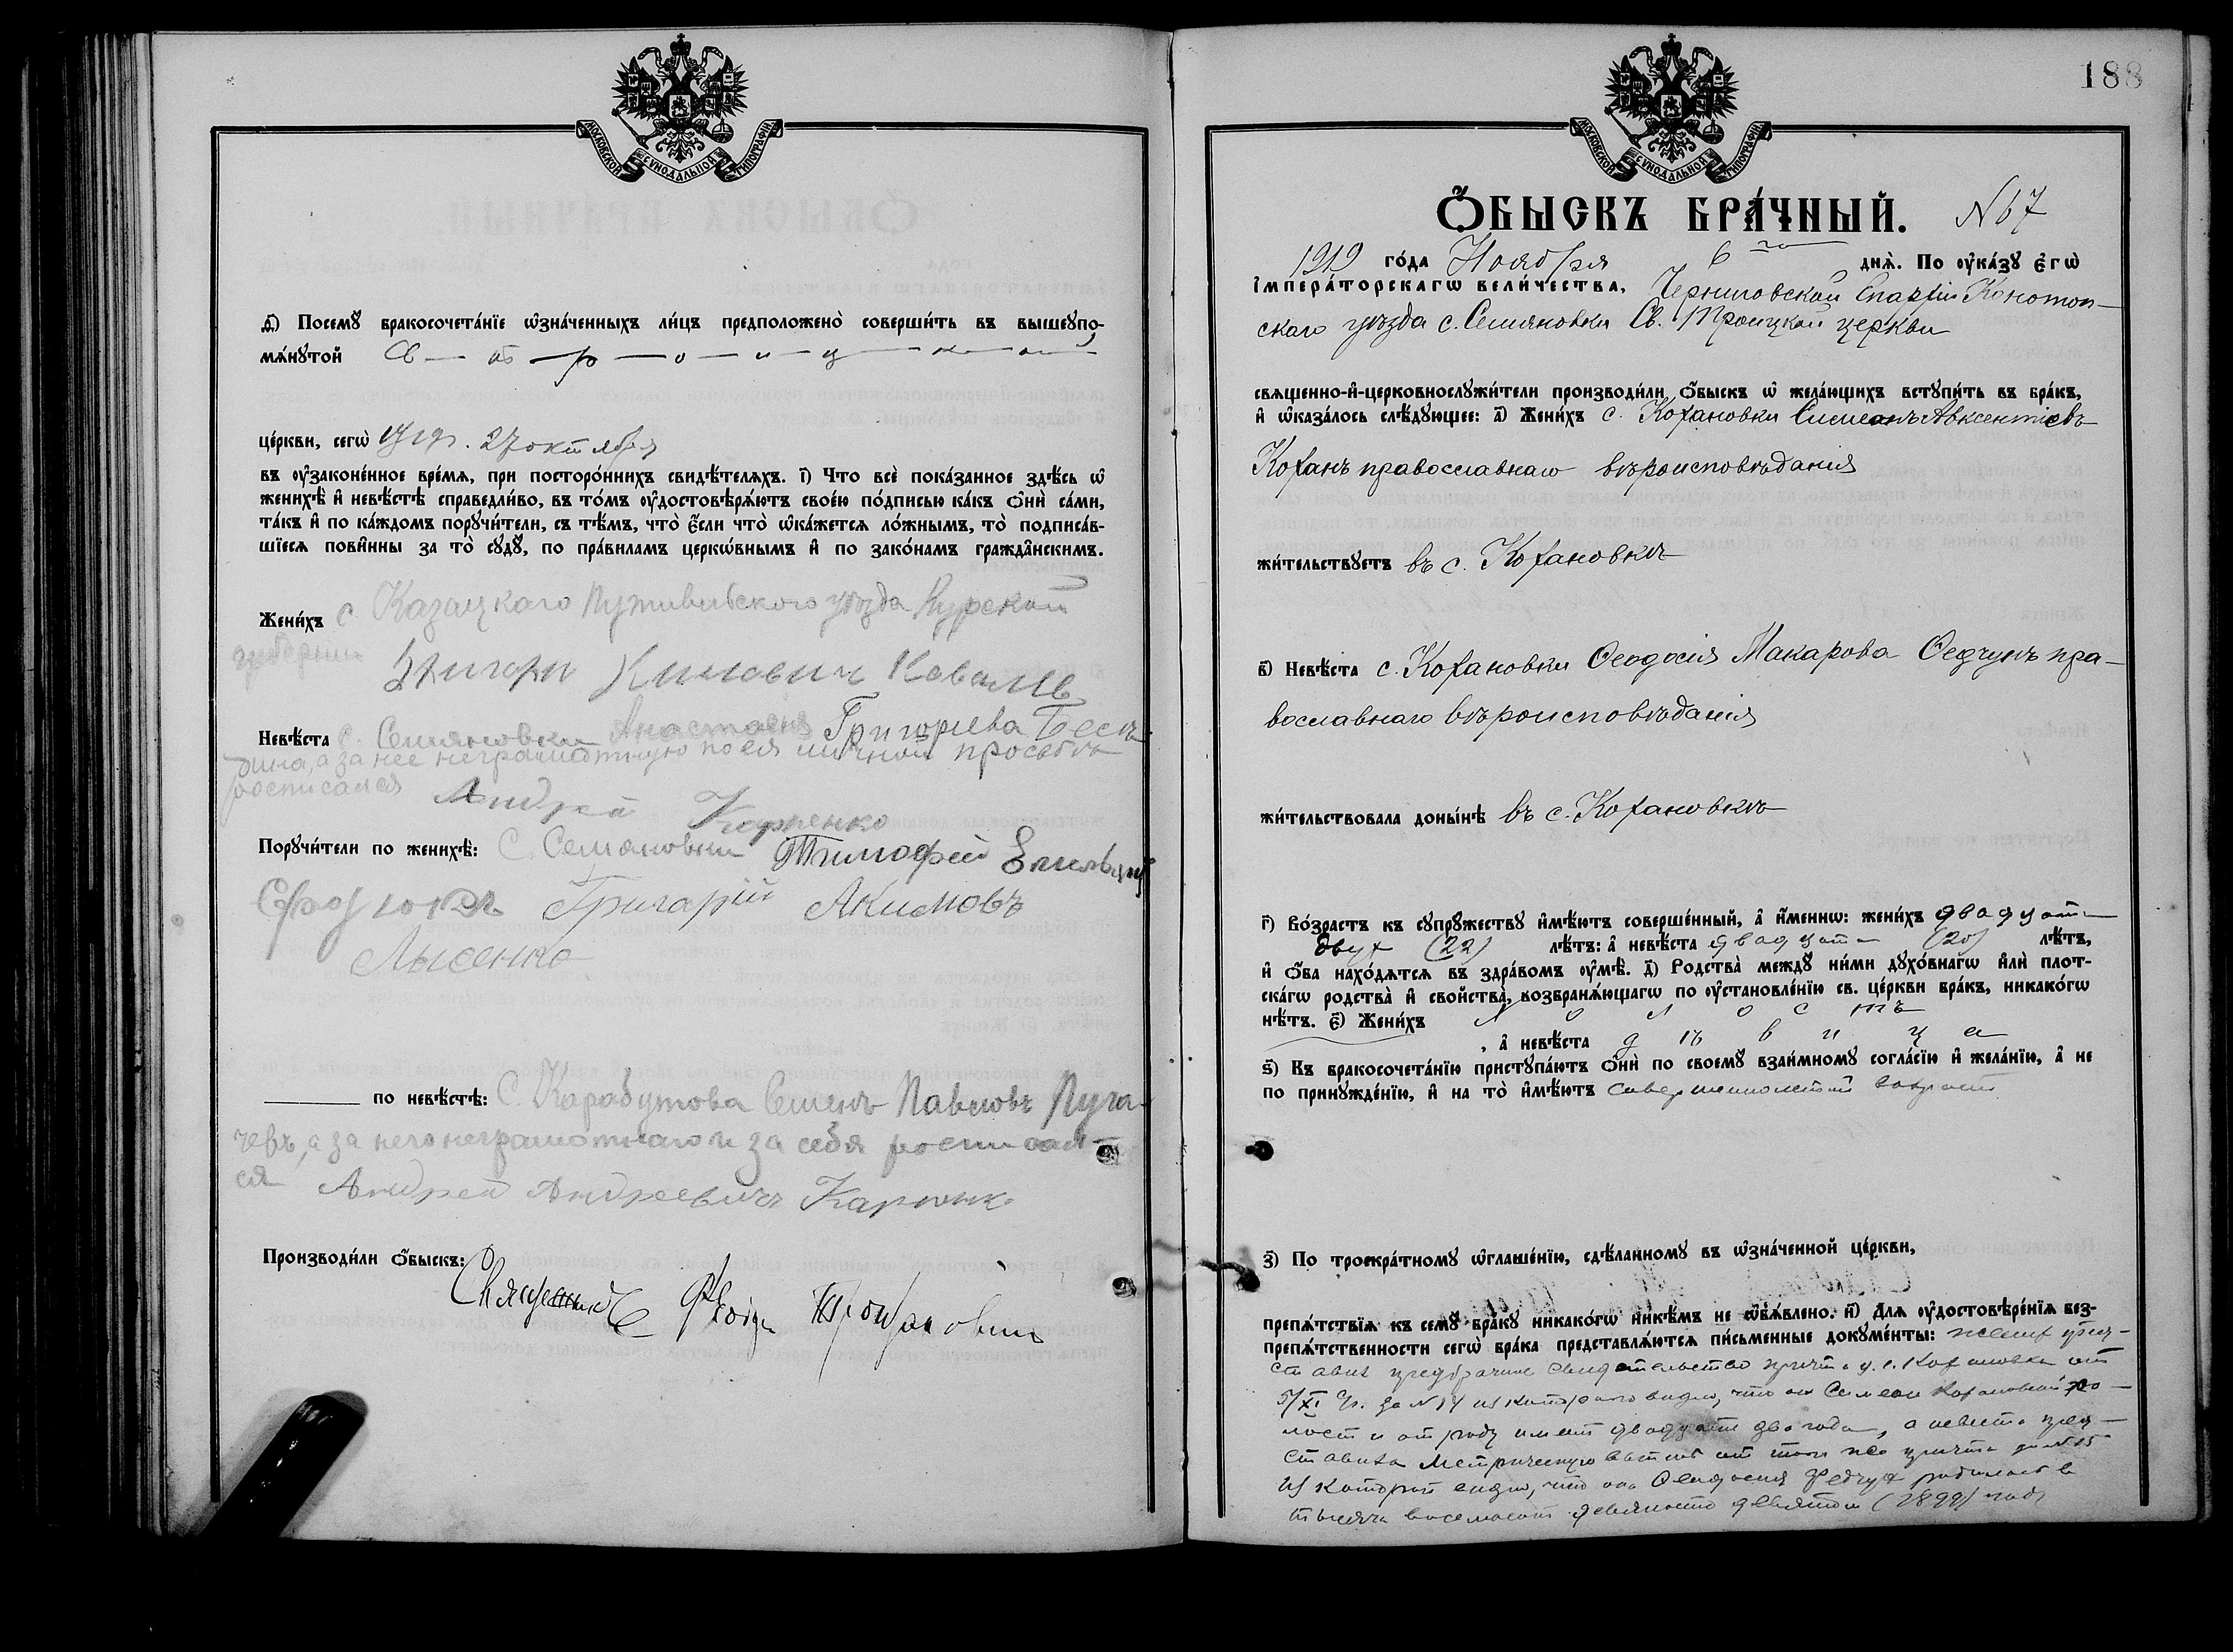 МОСКОВСКОЙ СУНОДАЛЬНОЙ ТИПОГРАФІИ
д҃) Посемꙋ̀ бракосочета́нїе ѡ҆зна́ченныхъ ли́цъ предположено̀ соверши́ть въ вышеꙋпо-
мѧ́нꙋтой Св — т — р — о — и — ц — к — о —
це́ркви, сегѡ̀ 1919 г. 27 октября
въ ᲂу҆зако́ненное вре́мѧ, при посторо́ннихъ свидѣ́телѧхъ. і҃) Что всѐ пока́занное здѣ́сь ѡ҆
женихѣ̀ и҆ невѣ́стѣ справедли́во, въ то́мъ ᲂу҆достовѣрѧ́ютъ свое́ю по́дписью ка́къ ѻ҆нѝ са́ми,
та́къ и҆ по ка́ждомъ порꙋчи́тели, съ тѣ́мъ, что̀ є҆́сли что̀ ѡ҆ка́жетсѧ ло́жнымъ, то̀ подписа́в-
шїесѧ пови́нны за то̀ сꙋдꙋ̀, по пра́виламъ церко́внымъ и҆ по зако́намъ гражда́нскимъ.
Жени́хъ с. Казацкаго Путивльского уѣзда Курской
губернии
Григори Климович Коваль
Невѣ́ста с. Семяновки Анастасія Григорьева Беск
дина, а за нее неграмотную по ея личной просьбѣ
росписался Андрей Карпенко
Порꙋчи́тели по женихѣ̀: С. Семяновки Тимофей
Григарій Акимовъ
Лысенко
по невѣ́стѣ: С. Карабутова Семенъ Павловъ Пуга-
чевъ, а за него неграмотнаго и за себя росписал-
ся Андрей Андреевичъ Карпенко
Производи́ли ѻ҆́быскъ: Священникъ
188
МОСКОВСКОЙ СУНОДАЛЬНОЙ ТИПОГРАФІИ
Ѻ҆́БЫСКЪ БРА́ЧНЫЙ. № 67
1919 го́да Ноября 6 го днѧ̀. По ᲂу҆ка́зꙋ є҆гѡ̀
і҆мпера́торскагѡ вели́чества, Черниговской Епархіи Конотоп-
скаго уѣзда с. Семяновки Св. Троицкой церкви
свѧщенно-и҆-церковнослꙋжи́тели производи́ли ѻ҆́быскъ ѡ҆ жела́ющихъ встꙋпи́ть въ бра́къ,
и҆ ѡ҆каза́лось слѣ́дꙋющее: а҃) Жени́хъ с. Коханов­ки Симеонъ Авксентіевъ
Коханъ православнаго вѣроисповѣданія
жи́тельствꙋетъ въ с. Кохановкѣ
в҃) Невѣ́ста с. Кохановки Ѳеодосія Макарова Ѳедчунъ пра-
вославнаго вѣроисповѣданія
жи́тельствовала доны́нѣ въ с. Кохановкѣ
г҃) Во́зрастъ къ сꙋпрꙋ́жествꙋ и҆мѣ́ютъ соверше́нный, а҆ и҆́меннѡ: жени́хъ двадцати
двух (22) лѣ́тъ: а҆ невѣ́ста двадцати (20) лѣ́тъ,
и҆ ѻ҆́ба нахо́дѧтсѧ въ здра́вомъ ᲂу҆мѣ̀. д҃) Родства̀ междꙋ̀ ни́ми дꙋхо́внагѡ и҆лѝ плот-
ска́гѡ родства̀ и҆ сво́йства, возбранѧ́ющагѡ по ᲂу҆становле́нїю св. це́ркви бра́къ, никако́гѡ
нѣ́тъ. є҃) Жени́хъ х о л о с т ъ
, а҆ невѣ́ста д ѣ в и ц а
ѕ҃) Къ бракосочета́нїю пристꙋпа́ютъ ѻ҆нѝ по своемꙋ̀ взаи́мномꙋ согла́сїю и҆ жела́нїю, а҆ не
по принꙋжде́нїю, и҆ на то̀ и҆мѣ́ютъ совершеннолетній возраст
з҃) По троекра́тномꙋ ѡ҆глаше́нїю, сдѣ́ланномꙋ въ ѡ҆зна́ченной це́ркви,
препѧ́тствїѧ къ семꙋ̀ бра́кꙋ никако́гѡ никѣ́мъ не ѡ҆б̾ѧ́влено. и҃) Длѧ ᲂу҆достовѣре́нїѧ без-
препѧ́тственности сегѡ̀ бра́ка представлѧ́ютсѧ пи́сьменные докꙋме́нты: жених пред-
ставил предбрачное свидетельство причта ц. с. Кохановки от
5/XI с.г. за № 14 из которого видно, что он Симеон Коханов хо-
лост и от роду имеет двадцать два года, а невеста пред-
ставила метрическую выпись от того же причта за № 15
из которой видно, что она Феодосия Федчун родилась в
тысяча восемьсот девяносто девятом (1899) году